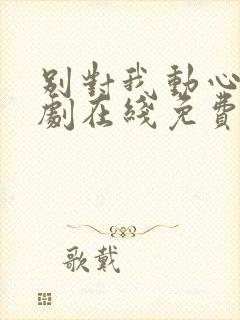 别對我動心
劇在綫免費
歌戴